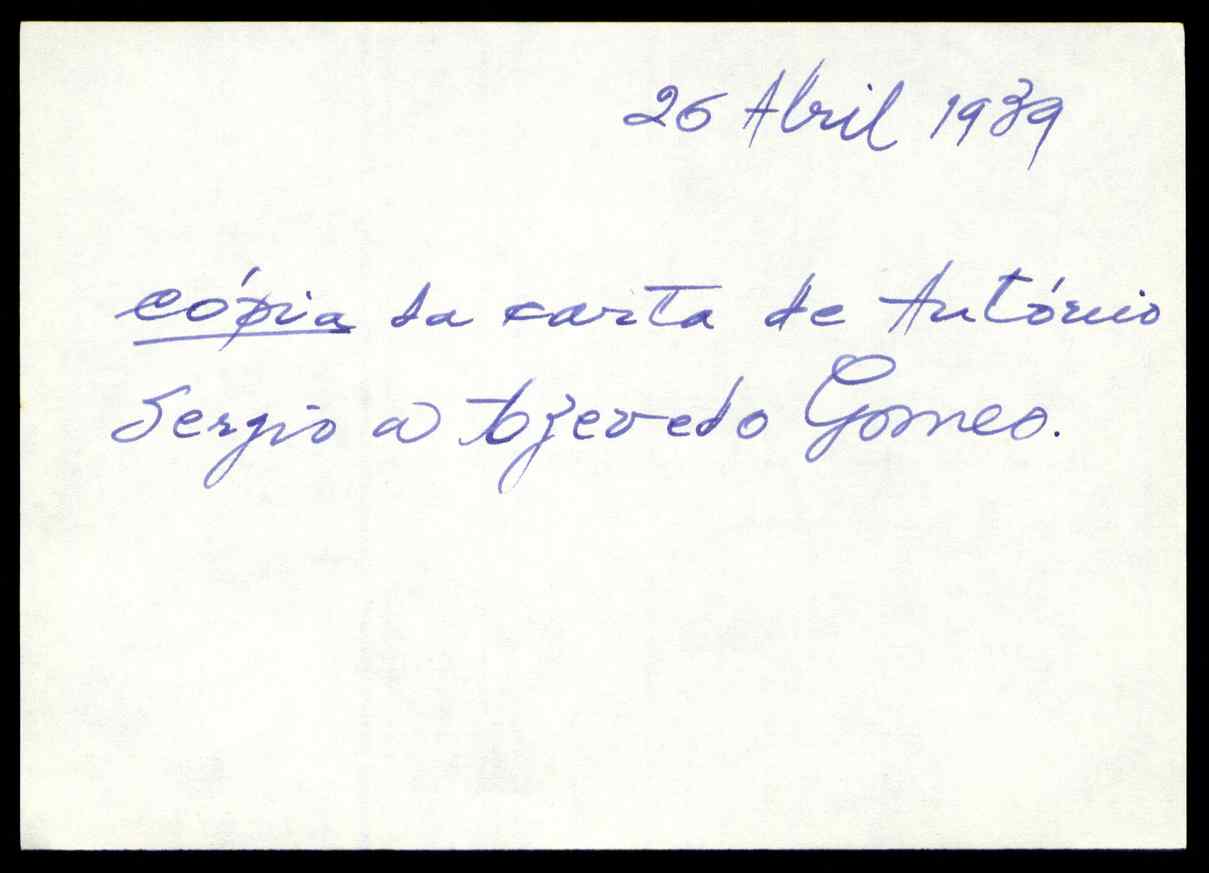 26 Abril 1939
cópia da carta de António
Sergio a Azevedo Gomes.